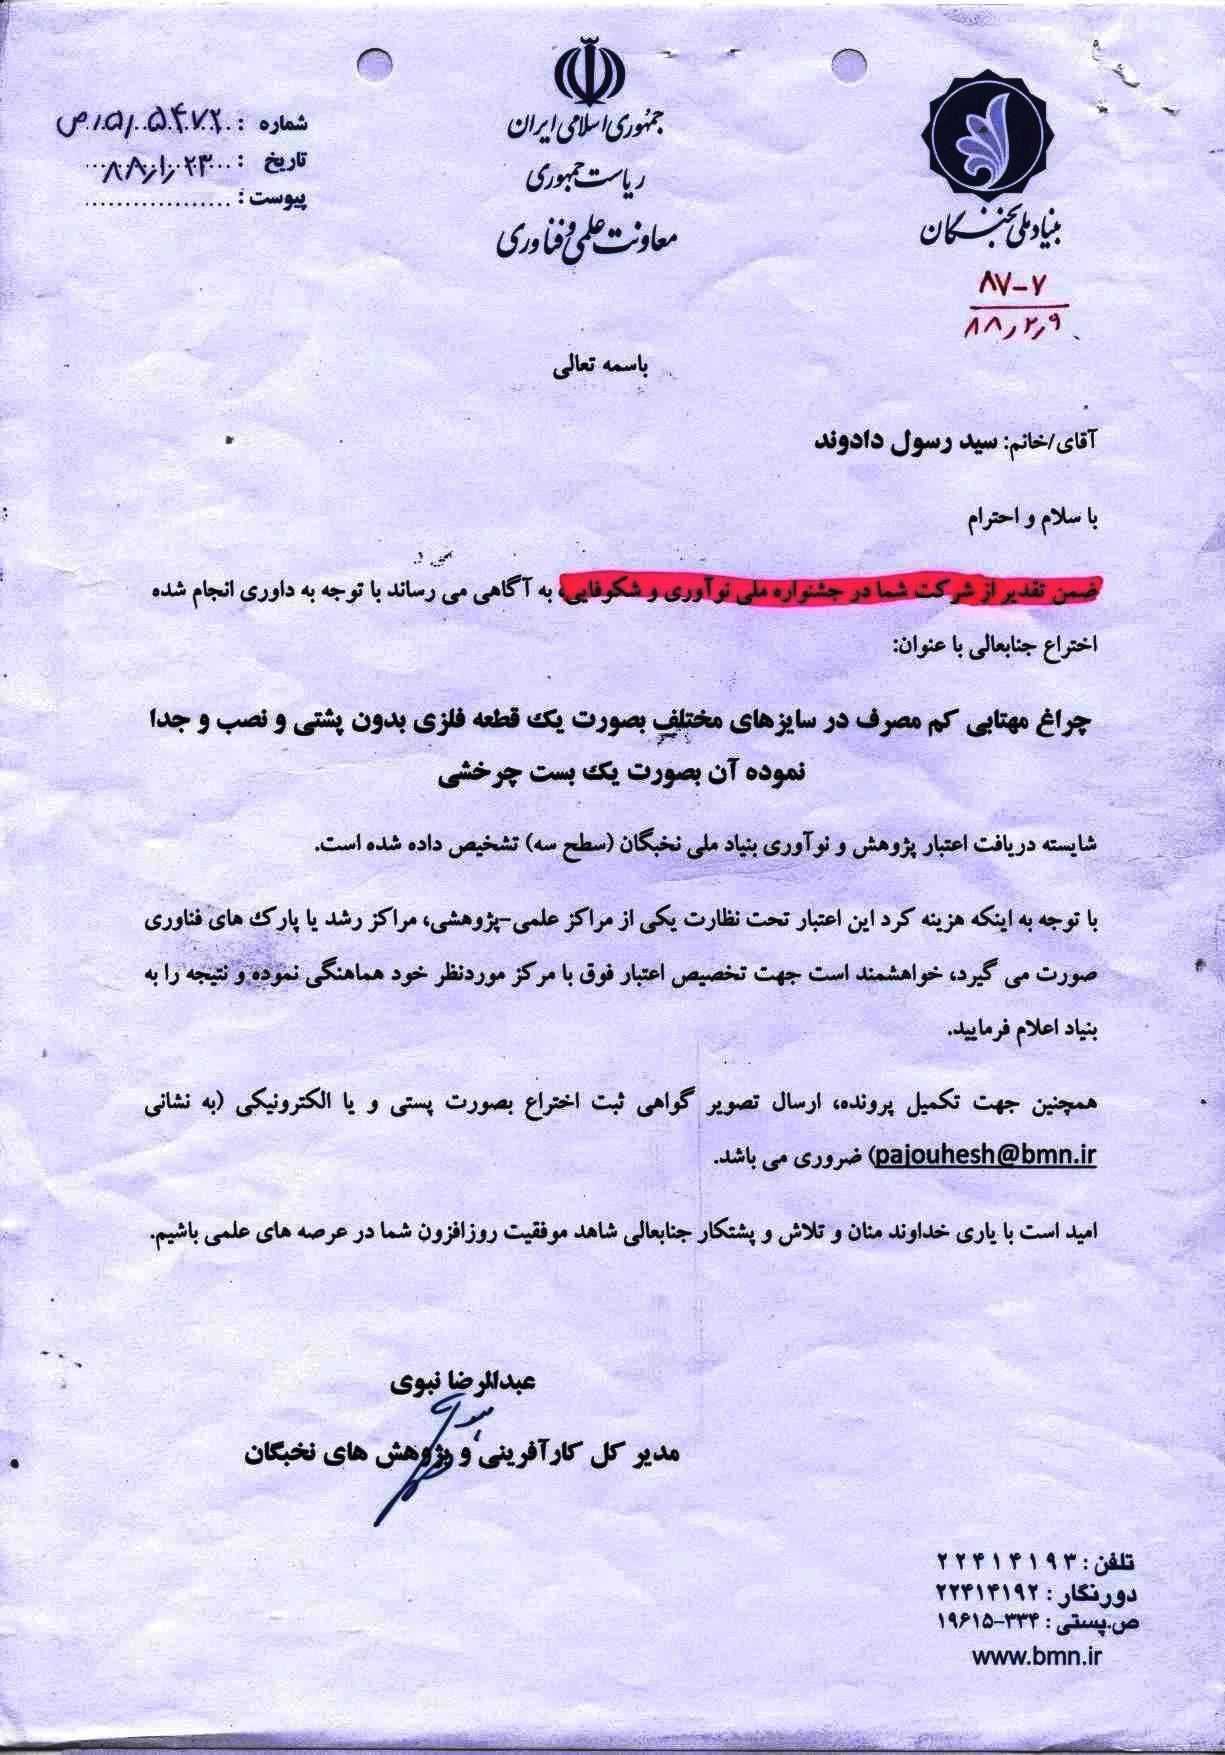 جمهوری اسلامی ایران
ریاست جمهوری
معاونت علمی و فناوری
بنیاد ملی نخبگان
شماره : ۱۵/۵۴۷۲/ص
تاریخ : ۸۸/۱/۲۳
پیوست :
۸۷-۷
۸۸/۲/۹
باسمه تعالی
آقای/خانم: سید رسول دادوند
با سلام و احترام
ضمن تقدیر از شرکت شما در جشنواره ملی نوآوری و شکوفایی، به آگاهی می رساند با توجه به داوری انجام شده
اختراع جنابعالی با عنوان:
چراغ مهتابی کم مصرف در سایزهای مختلف بصورت یک قطعه فلزی بدون پشتی و نصب و جدا
نموده آن بصورت یک بست چرخشی
شایسته دریافت اعتبار پژوهش و نوآوری بنیاد ملی نخبگان (سطح سه) تشخیص داده شده است.
با توجه به اینکه هزینه کرد این اعتبار تحت نظارت یکی از مراکز علمی-پژوهشی، مراکز رشد یا پارک های فناوری
صورت می گیرد، خواهشمند است جهت تخصیص اعتبار فوق با مرکز موردنظر خود هماهنگی نموده و نتیجه را به
بنیاد اعلام فرمایید.
همچنین جهت تکمیل پرونده، ارسال تصویر گواهی ثبت اختراع بصورت پستی و یا الکترونیکی (به نشانی
pajouhesh@bmn.ir) ضروری می باشد.
امید است با یاری خداوند منان و تلاش و پشتکار جنابعالی شاهد موفقیت روزافزون شما در عرصه های علمی باشیم.
عبدالرضا نبوی
مدیر کل کارآفرینی و پژوهش های نخبگان
تلفن : ۲۲۴۱۴۱۹۳
دورنگار : ۲۲۴۱۴۱۹۲
ص.پستی : ۳۳۴-۱۹۶۱۵
www.bmn.ir